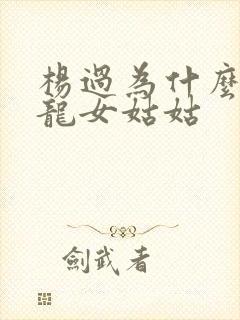 楊過為什麼
龍女姑姑
劍武者